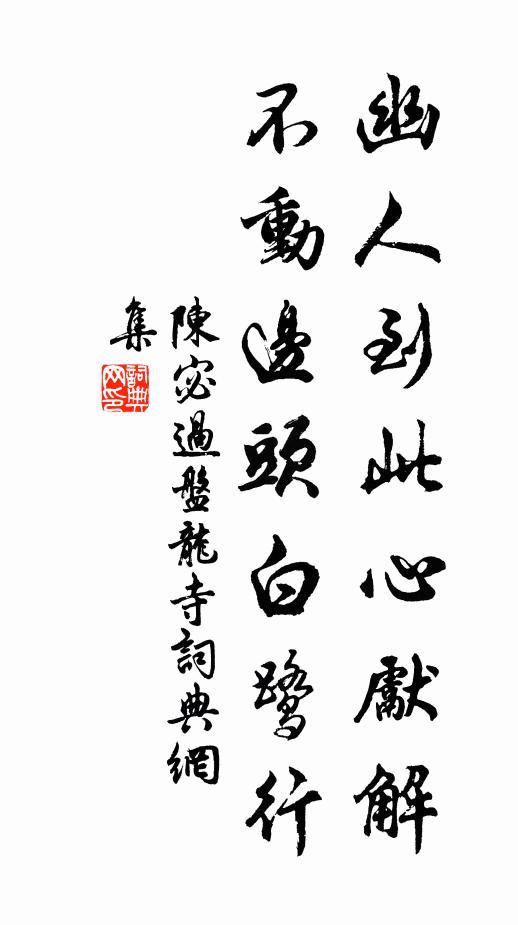 幽人到此心獻解
不動邊頭白鷺行
陳宓過盤龍寺詞典網
集
詞典
网印